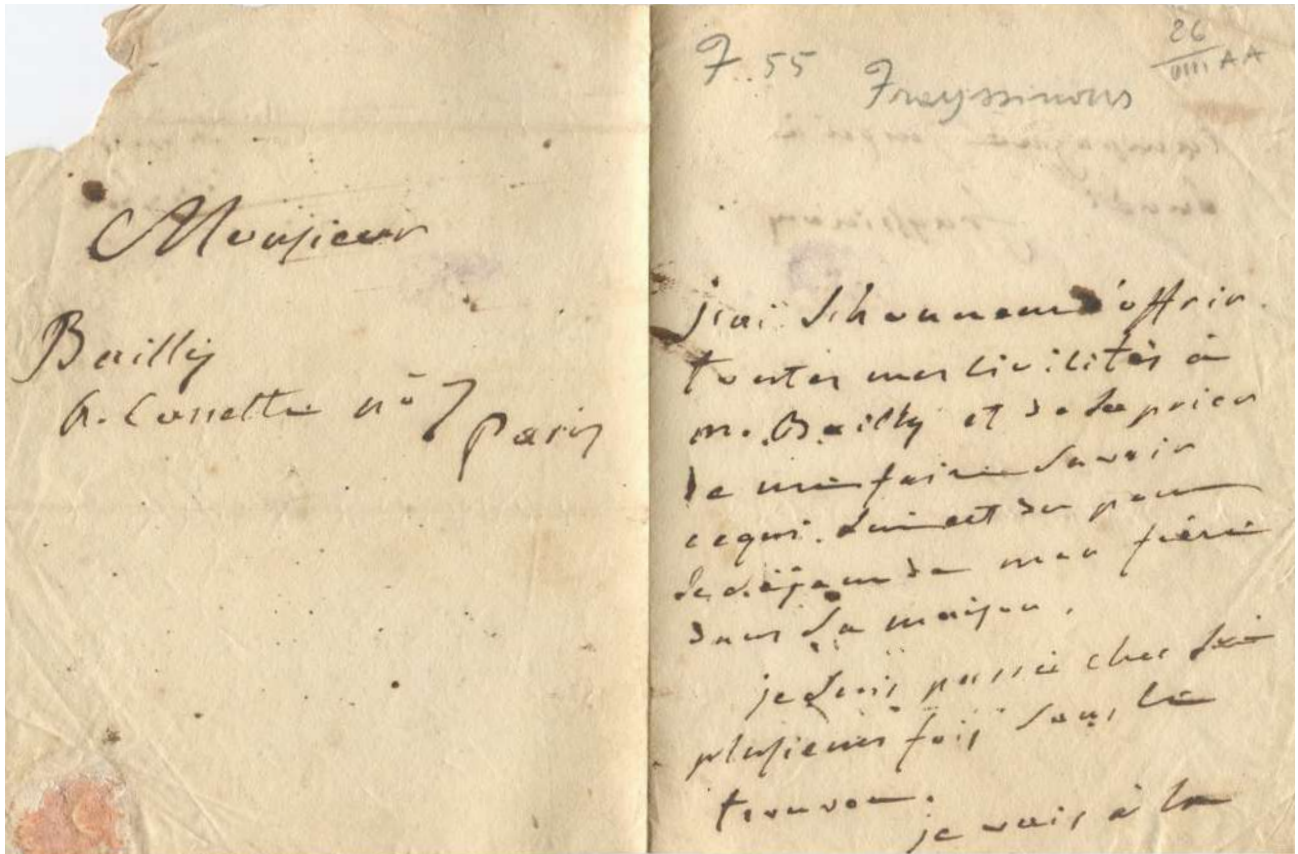 Monsieur
Bailly
r. Cassette nº 7
Paris
F. 55
26
AA
Frayssinous
j'ai l'honneur d'offrir
toutes mes civilités à
m. Bailly et de le prier
de me faire savoir
ce qui lui est du pour
le séjour de mon frère
dans sa maison.
je suis passé chez lui
plusieurs fois sans le
trouver.
je vais à la